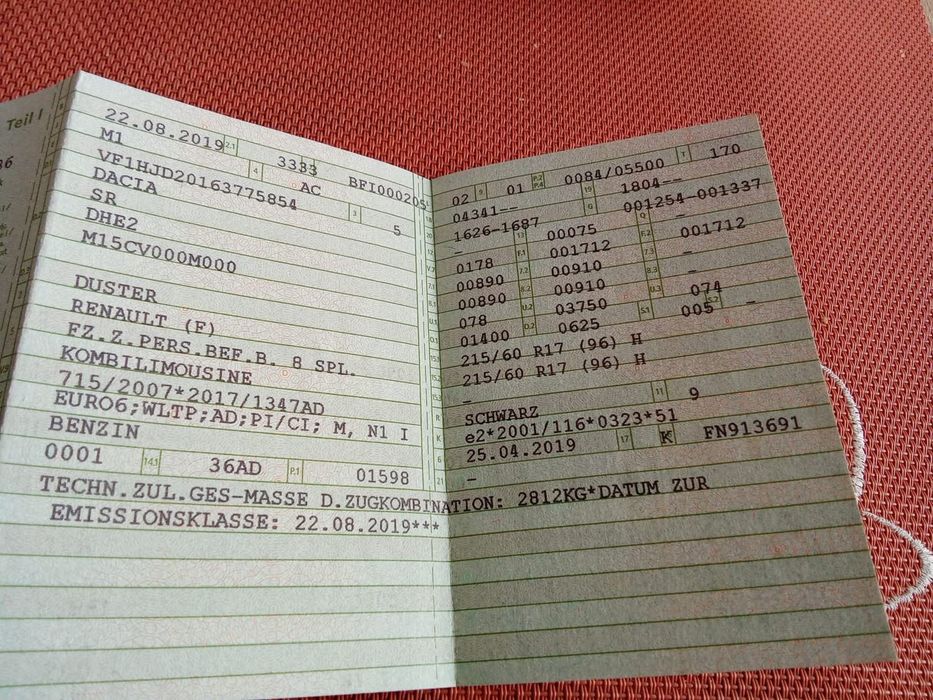 Teil I
22.08.2019 2.1 3333 BFI000205
M1 4 AC
VF1HJD20163775854 3 5
DACIA
SR
DHE2
M15CV000M000
DUSTER
RENAULT (F)
FZ.Z.PERS.BEF.B. 8 SPL.
KOMBILIMOUSINE
715/2007*2017/1347AD
EURO6;WLTP;AD;PI/CI; M, N1 I
BENZIN
0001 14.1 36AD P.1 01598
02 9 01 P.2 P.4 0084/05500 T 170
04341-- 19 1804--
1626-1687 G 001254-001337
- 13 00075 Q -
0178 F.1 001712 F.2 001712
00890 7.2 00910 7.3 -
00890 8.2 00910 8.3 -
078 U.2 03750 U.3 074
01400 O.2 0625 S.1 005 S.2 -
215/60 R17 (96) H
215/60 R17 (96) H
-
SCHWARZ 11 9
e2*2001/116*0323*51
25.04.2019 17 K FN913691
-
TECHN.ZUL.GES-MASSE D.ZUGKOMBINATION: 2812KG*DATUM ZUR
EMISSIONSKLASSE: 22.08.2019***